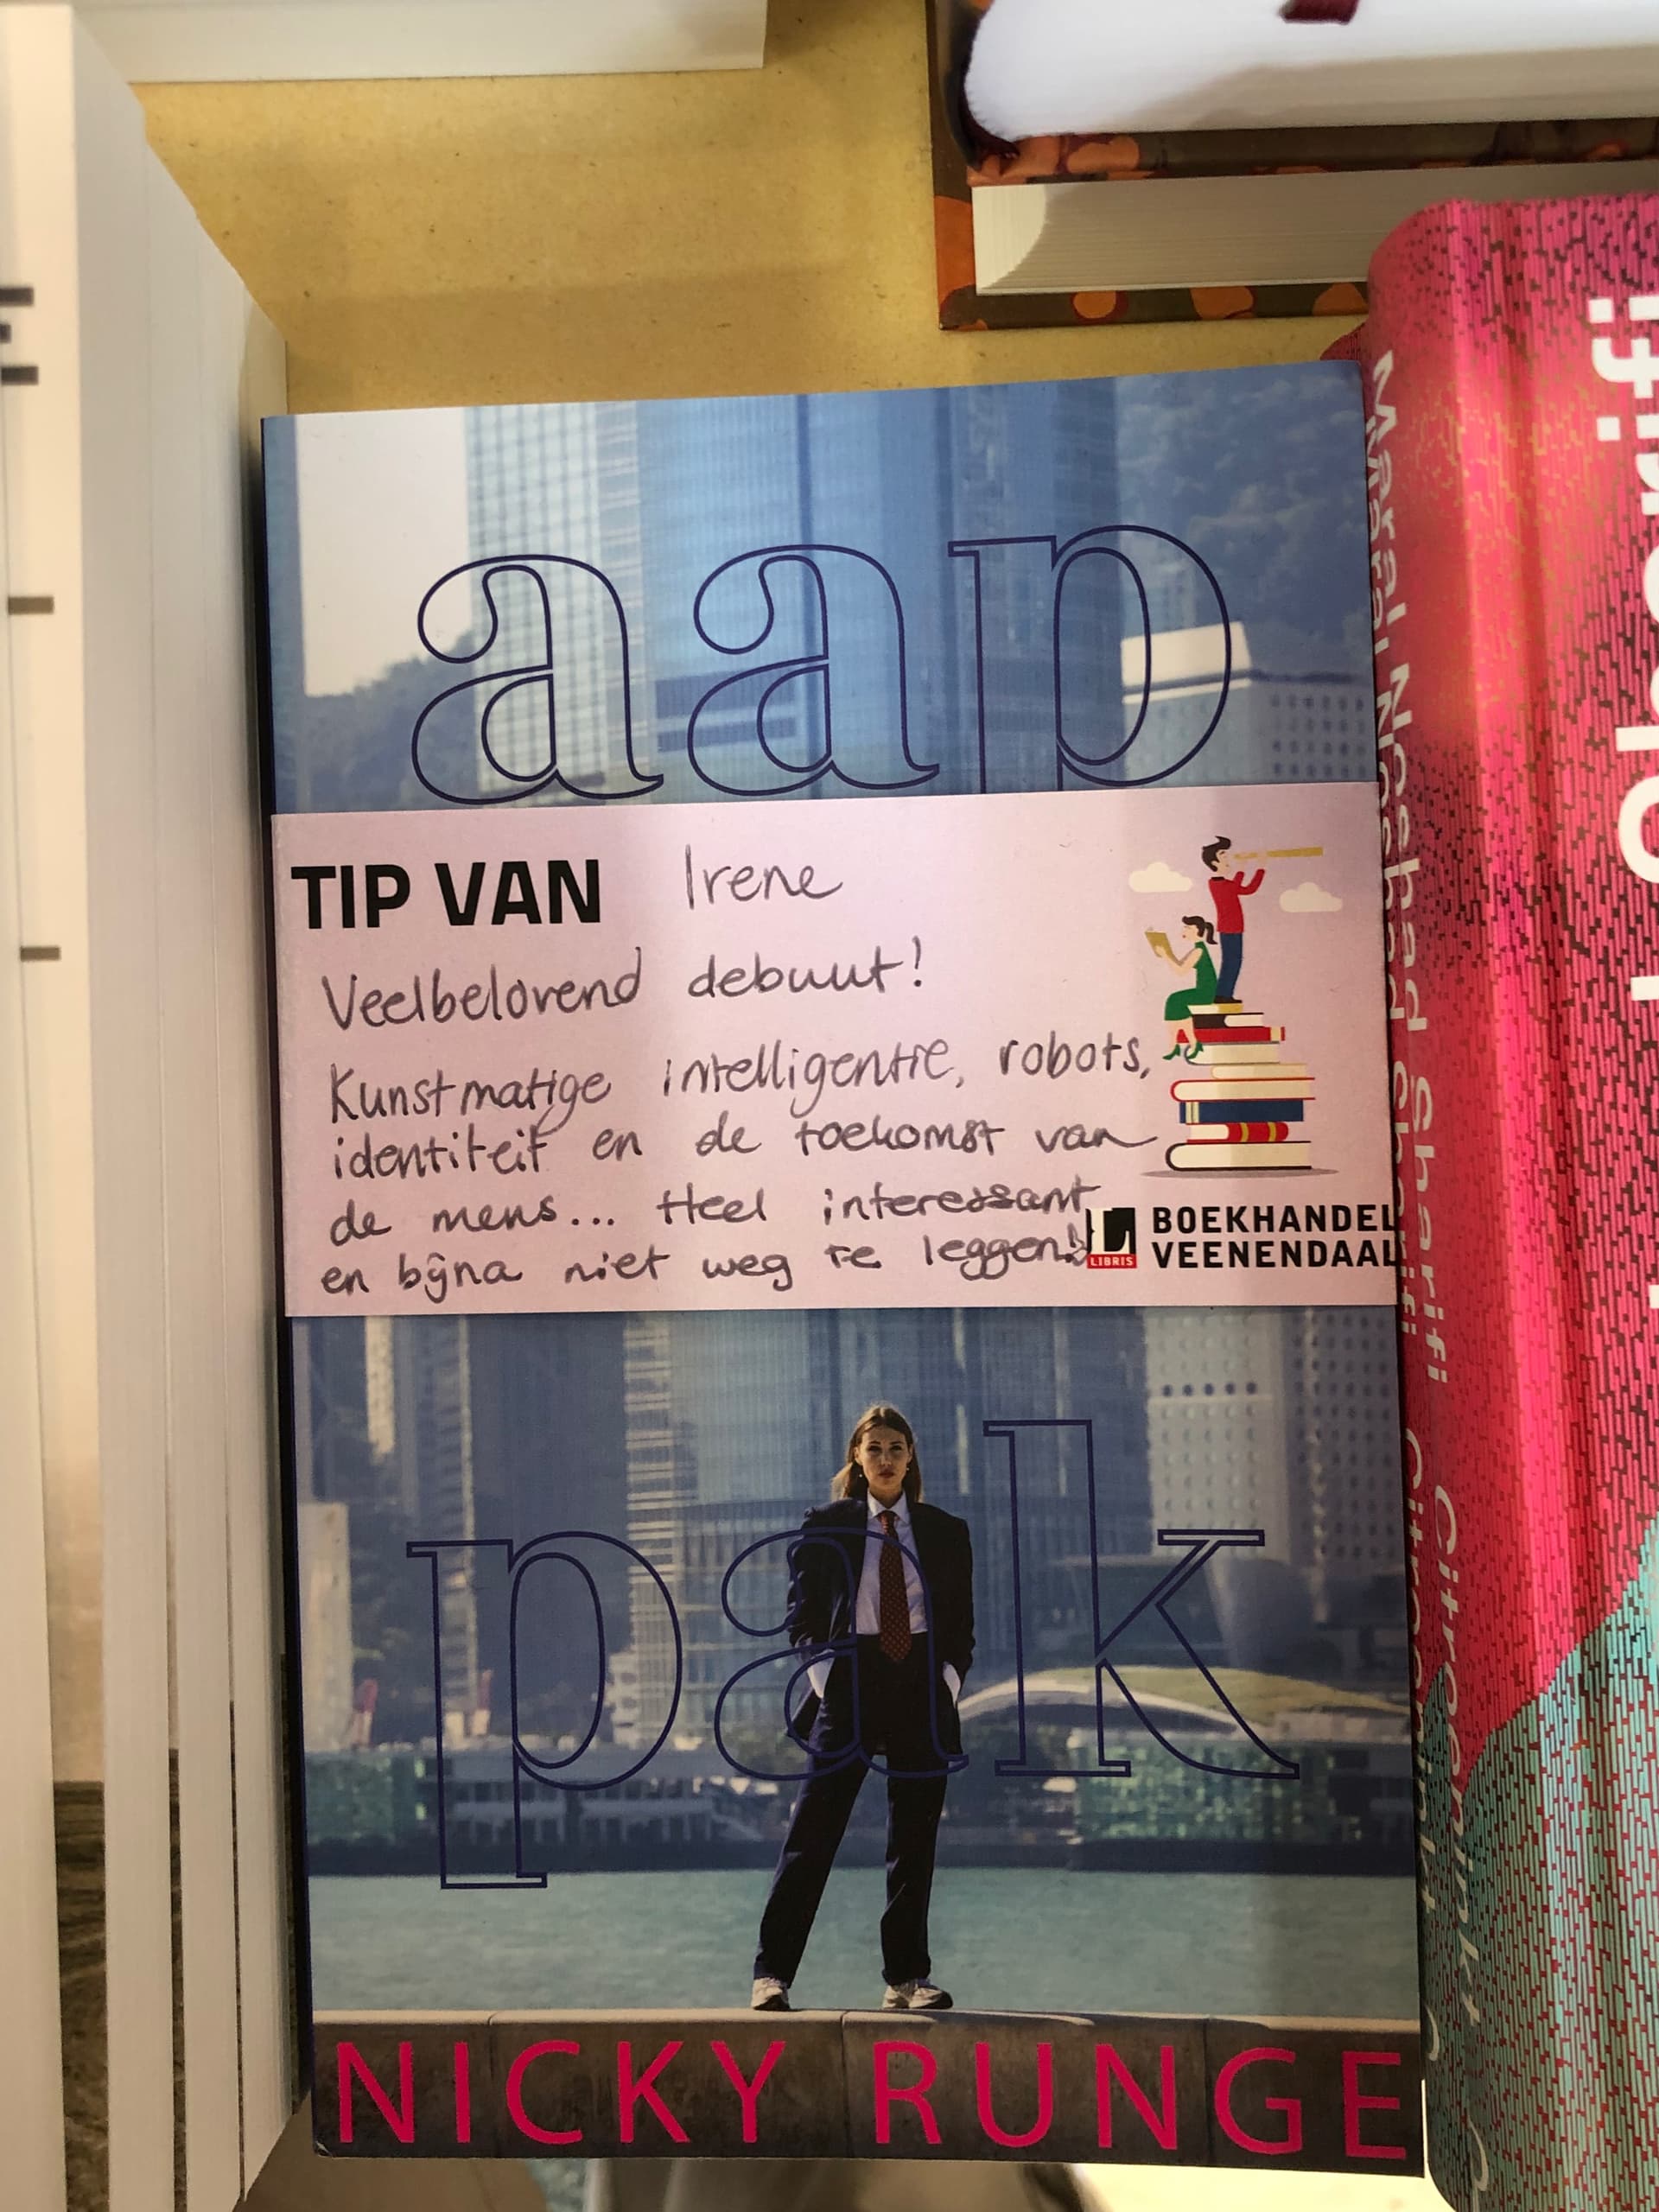 aap
TIP VAN Irene
Veelbelovend debuut!
Kunstmatige intelligentie, robots,
identiteit en de toekomst van
de mens... Heel interessant
en bijna niet weg te leggen!
LIBRIS
BOEKHANDEL
VEENENDAAL
pak
NICKY RUNGE
Maral Noshad Sharifi